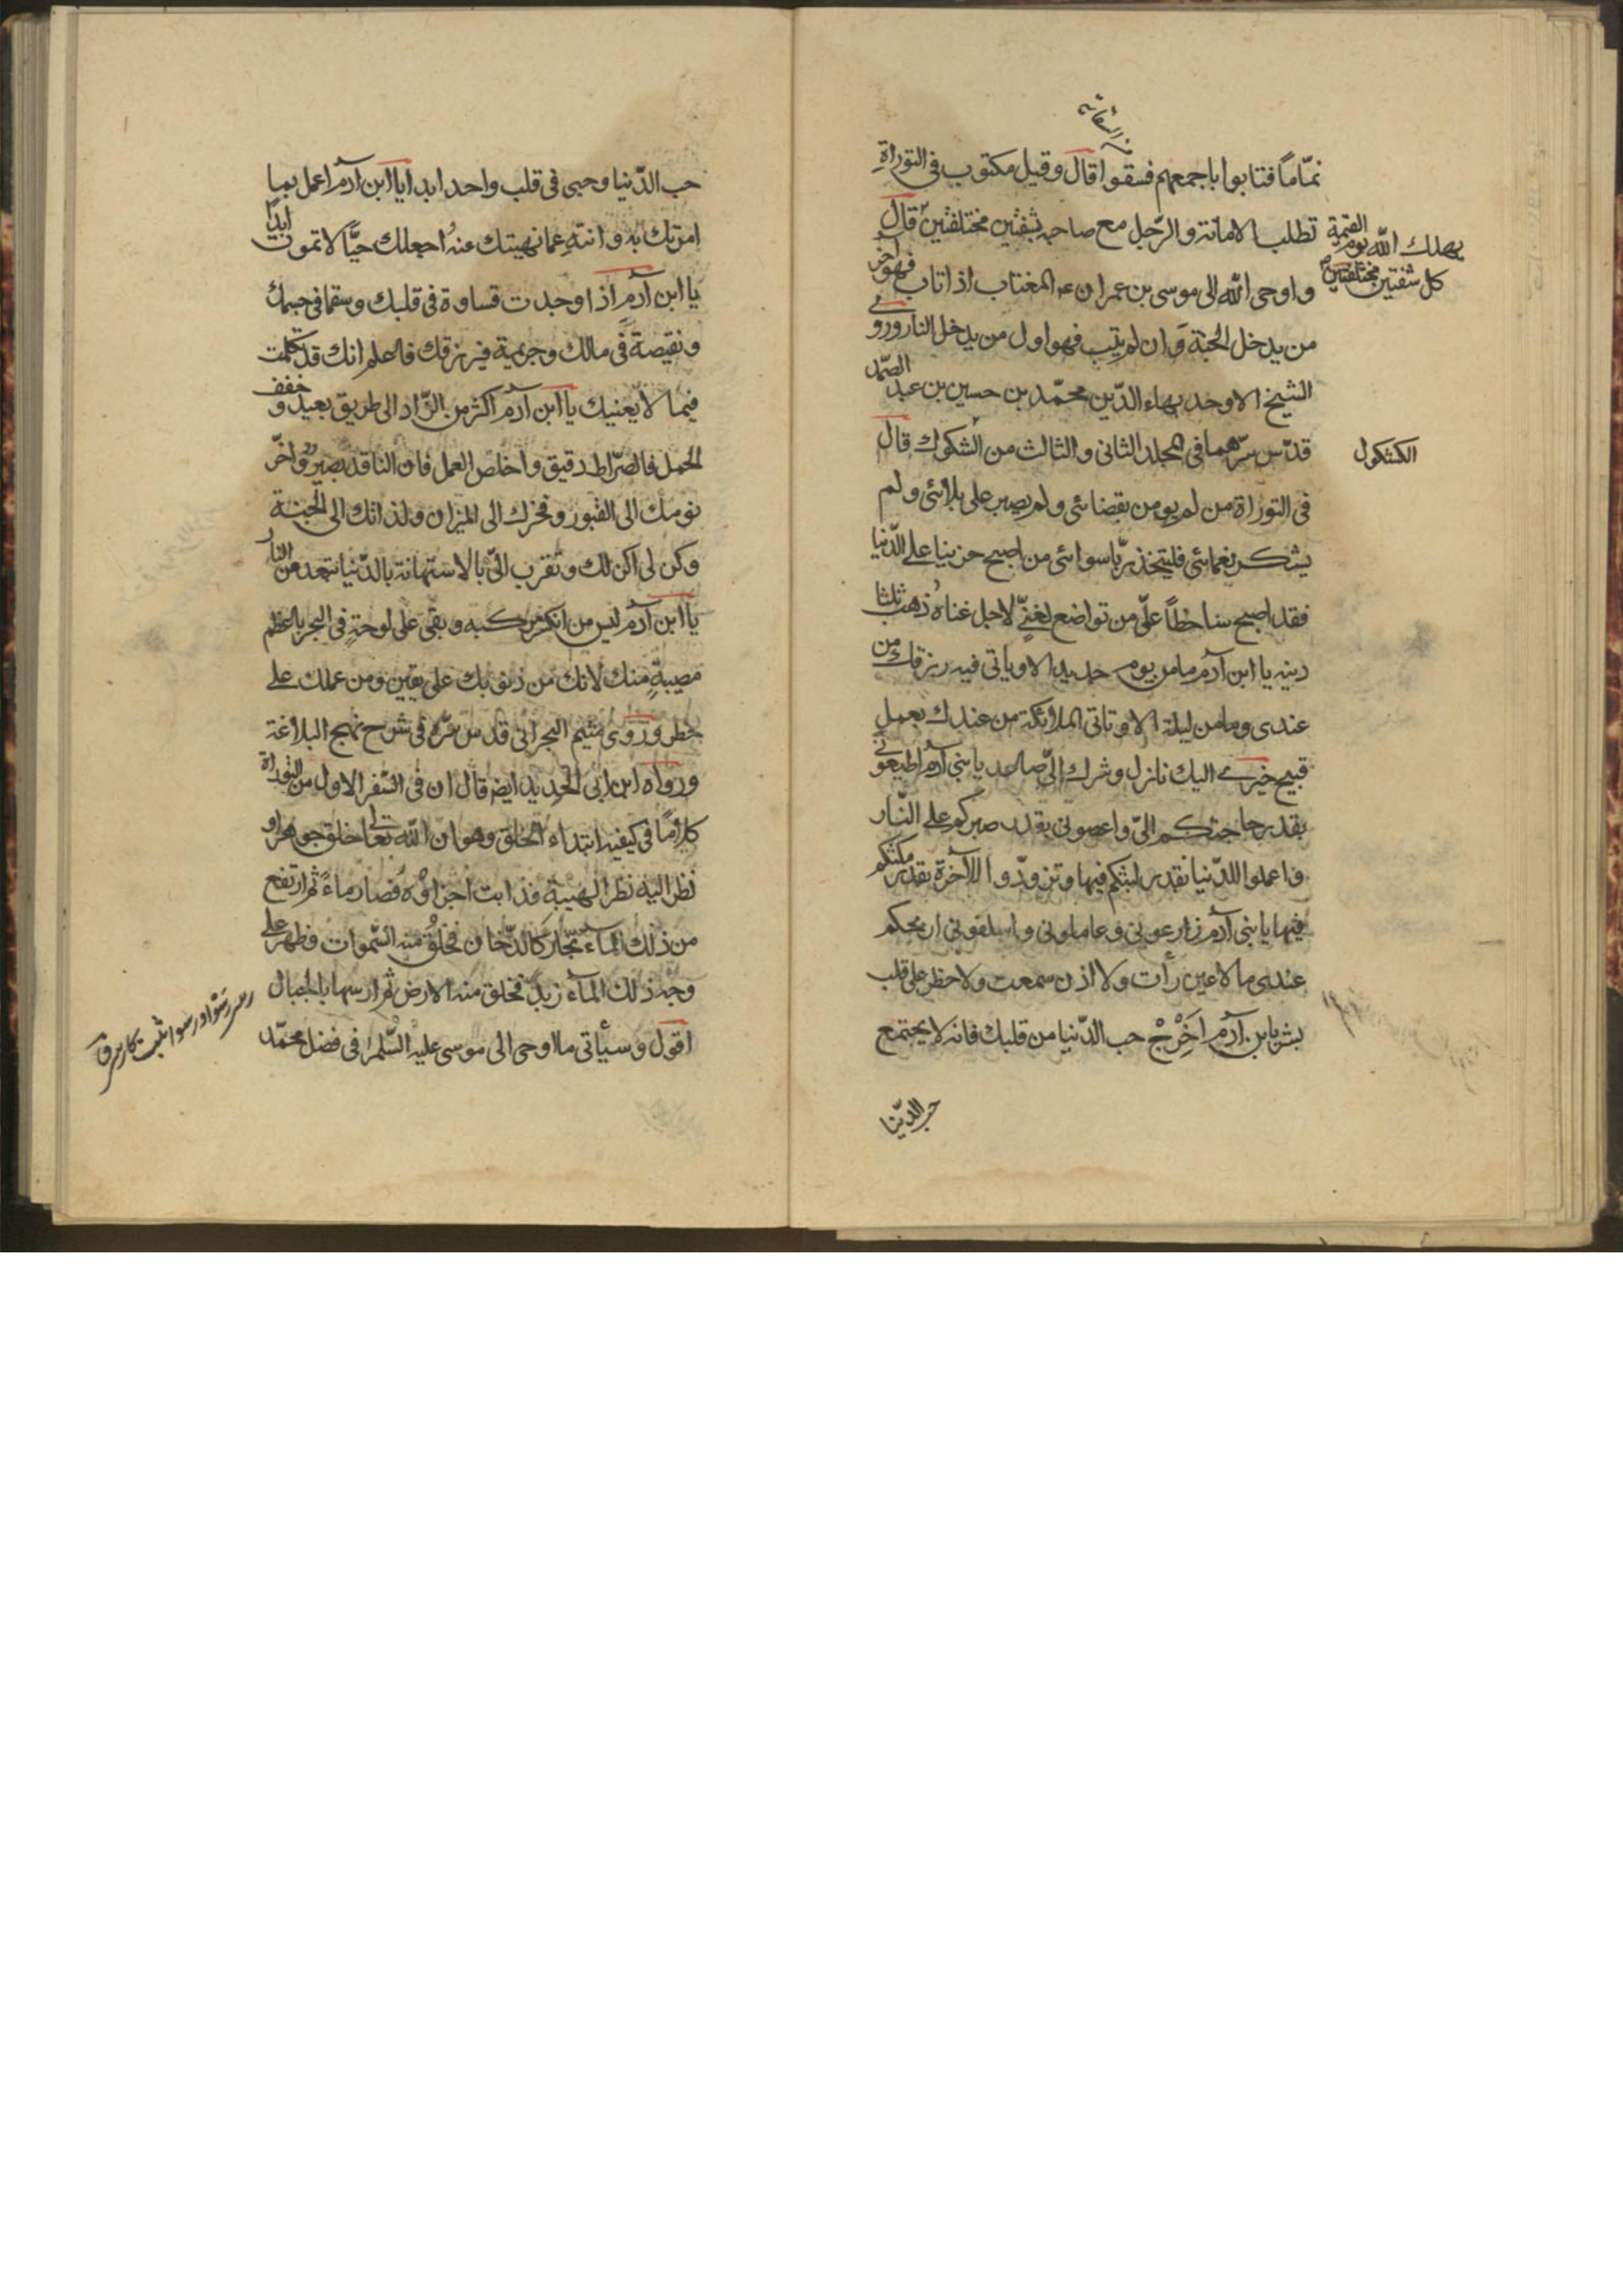 نمّاماً فتابوا باجمعهم فسقوا قال وقيل مكتوب فى التوراة
تطلب الامانة والرّجل مع صاحبه بشفتين مختلفتين قال
يهلك الله يوم القيمة
كل شفتين مختلفتين
واوحى الله الى موسى بن عمران عه المغتاب اذا تاب فهو آخر
من يدخل الجنة وان لم يتب فهو اول من يدخل النار وروى
الشيخ الاوحد بهاء الدّين محمّد بن حسين بن عبد الصمّد
قدّس سرّهما فى المجلد الثانى والثالث من الشكوك قال
الكشكول
فى التوراة من لم يومن بقضائى ولم يصبر على بلائى ولم
يشكر نعمائى فليتخذ ربّا سوائى من اصبح حزينا على الدّنيا
فقد اصبح ساخطاً علىّ من تواضع لغنىّ لاجل غناه ذهب ثلثا
دينه يا ابن آدم ما من يوم جديد الا وياتى فيه رزقك من
عندى وما من ليلة الا وتاتى الملائكة من عندك بعمل
قبيح خيرى اليك نازل وشرك الىّ صاعد يا بنى آدم اطيعونى
بقدر حاجتكم الىّ واعصونى بقدر صبركم على النّار
واعملوا للدّنيا بقدر لبثكم فيها وتزوّدوا للآخرة بقدر مكثكم
فيها يا بنى آدم زارعونى وعاملونى واسلفونى اربحكم
عندى ما لا عين رأت ولا اذن سمعت ولا خطر على قلب
بشر يا بن آدم اَخْرِجْ حب الدّنيا من قلبك فانه لا يجتمع
حب الدّنيا
حب الدّنيا وحبى فى قلب واحد ابدا يا ابن آدم اعمل بما
امرتك به وانته عما نهيتك عنه اجعلك حيًّا لا تموت ابدًا
يا ابن آدم اذا وجدت قساوة فى قلبك وسقما فى جسمك
ونقيصة فى مالك وجريمة فى رزقك فاعلم انك قد تكلمت
فيما لا يعنيك يا ابن آدم اكثر من الزّاد الى طريق بعيد وخفف
الحمل فالصّراط دقيق واخلص العمل فان الناقد بصير واخّر
نومك الى القبور وفخرك الى الميزان ولذاتك الى الجنة
وكن لى اكن لك وتقرب الىّ بالاستهانة بالدّنيا تبعد عن النار
يا ابن آدم ليس من انكسر مركبه وبقى على لوحة فى البحر باعظم
مصيبةٍ منك لانك من ذنوبك على يقين ومن عملك على
خطر وروى ميثم البحرانى قدس سرّه فى شرح نهج البلاغة
ورواه ابن ابى الحديد ايضا قال ان فى السّفر الاول من التوراة
كلاماً فى كيفيه ابتداء الخلق وهو ان الله تعالى خلق جوهرا و
نظر اليه نظر الهيبة فذابت اجزاؤه فصار ماءً ثم ارتفع
من ذلك الماء بخار كالدّخان فخلق منه السّموات وظهر على
وجه ذلك الماء زبدٌ فخلق منه الارض ثم ارسها بالجبال
اقول وسيأتى ما اوحى الى موسى عليه السّلم فى فضل محمّد